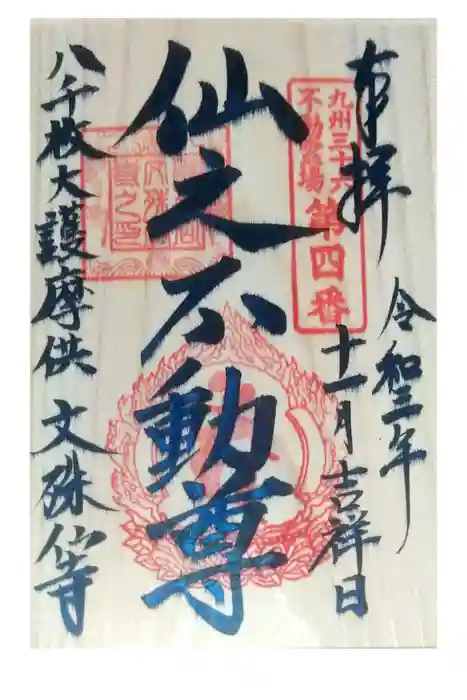 奉拝
九州三十六
不動霊場
第四番
令和三年
十一月吉祥日
仙之不動尊
八千枚大護摩供 文殊仙寺